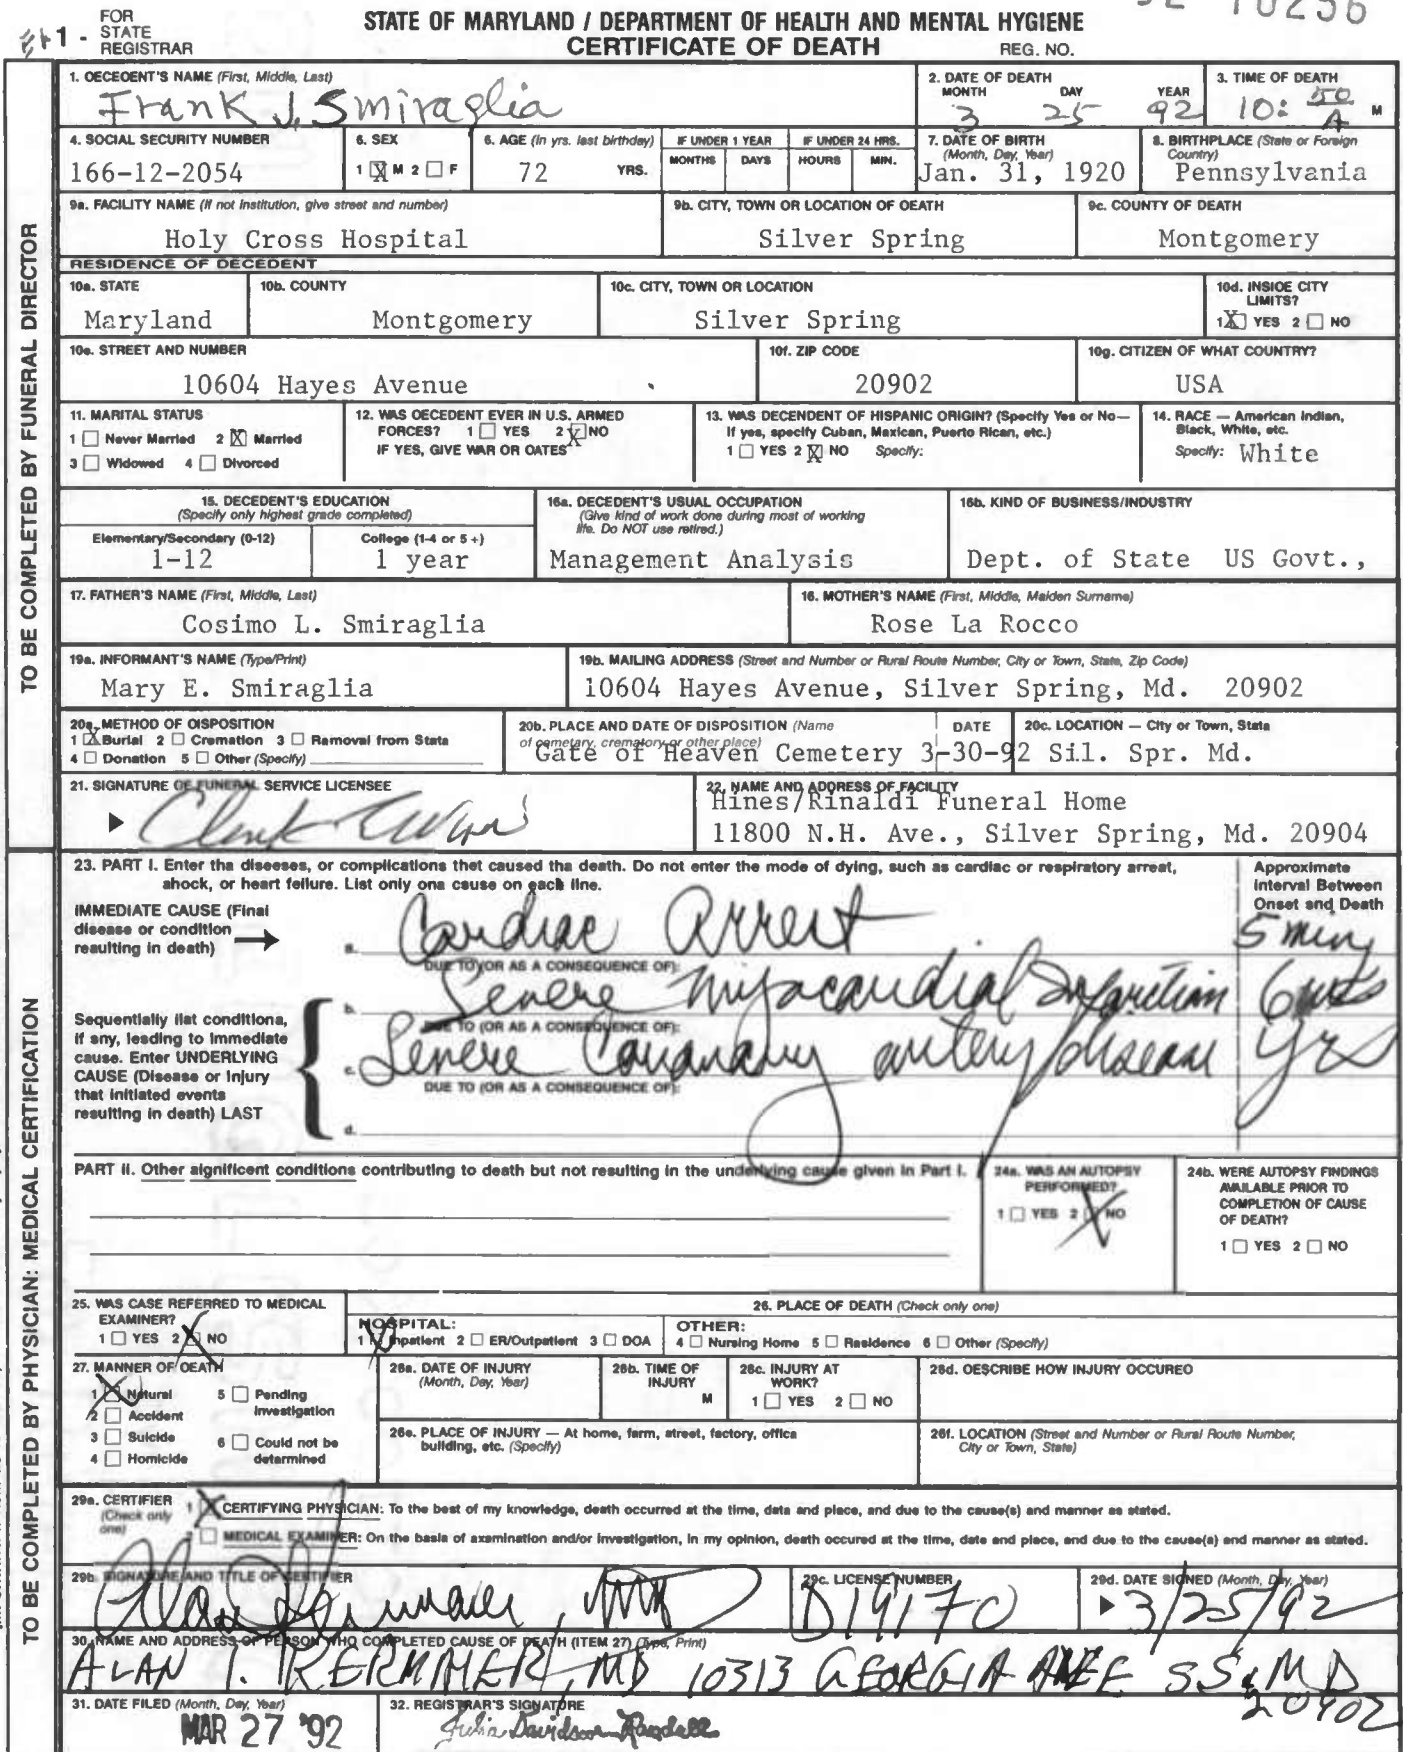 FOR
STATE
REGISTRAR
1 -
STATE OF MARYLAND / DEPARTMENT OF HEALTH AND MENTAL HYGIENE
CERTIFICATE OF DEATH REG. NO.
1. DECEDENT'S NAME (First, Middle, Last)
Frank J. Smiraglia
2. DATE OF DEATH
MONTH DAY YEAR
3 25 92
3. TIME OF DEATH
10: 50 A M
4. SOCIAL SECURITY NUMBER
166-12-2054
5. SEX
1 X M 2 F
6. AGE (In yrs. last birthday)
72 YRS.
IF UNDER 1 YEAR
MONTHS DAYS
IF UNDER 24 HRS.
HOURS MIN.
7. DATE OF BIRTH
(Month, Day, Year)
Jan. 31, 1920
8. BIRTHPLACE (State or Foreign
Country)
Pennsylvania
9a. FACILITY NAME (If not institution, give street and number)
Holy Cross Hospital
9b. CITY, TOWN OR LOCATION OF DEATH
Silver Spring
9c. COUNTY OF DEATH
Montgomery
RESIDENCE OF DECEDENT
10a. STATE
Maryland
10b. COUNTY
Montgomery
10c. CITY, TOWN OR LOCATION
Silver Spring
10d. INSIDE CITY
LIMITS?
1 X YES 2 NO
10e. STREET AND NUMBER
10604 Hayes Avenue
10f. ZIP CODE
20902
10g. CITIZEN OF WHAT COUNTRY?
USA
11. MARITAL STATUS
1 Never Married 2 X Married
3 Widowed 4 Divorced
12. WAS DECEDENT EVER IN U.S. ARMED
FORCES? 1 YES 2 X NO
IF YES, GIVE WAR OR DATES
13. WAS DECENDENT OF HISPANIC ORIGIN? (Specify Yes or No—
If yes, specify Cuban, Mexican, Puerto Rican, etc.)
1 YES 2 X NO Specify:
14. RACE — American Indian,
Black, White, etc.
Specify: White
15. DECEDENT'S EDUCATION
(Specify only highest grade completed)
Elementary/Secondary (0-12)
1-12
College (1-4 or 5+)
1 year
16a. DECEDENT'S USUAL OCCUPATION
(Give kind of work done during most of working
life. Do NOT use retired.)
Management Analysis
16b. KIND OF BUSINESS/INDUSTRY
Dept. of State US Govt.,
17. FATHER'S NAME (First, Middle, Last)
Cosimo L. Smiraglia
18. MOTHER'S NAME (First, Middle, Maiden Surname)
Rose La Rocco
19a. INFORMANT'S NAME (Type/Print)
Mary E. Smiraglia
19b. MAILING ADDRESS (Street and Number or Rural Route Number, City or Town, State, Zip Code)
10604 Hayes Avenue, Silver Spring, Md. 20902
20a. METHOD OF DISPOSITION
1 X Burial 2 Cremation 3 Removal from State
4 Donation 5 Other (Specify)
20b. PLACE AND DATE OF DISPOSITION (Name
of cemetary, crematory or other place) DATE
Gate of Heaven Cemetery 3-30-92
20c. LOCATION — City or Town, State
Sil. Spr. Md.
21. SIGNATURE OF FUNERAL SERVICE LICENSEE
22. NAME AND ADDRESS OF FACILITY
Hines/Rinaldi Funeral Home
11800 N.H. Ave., Silver Spring, Md. 20904
TO BE COMPLETED BY FUNERAL DIRECTOR
23. PART I. Enter the diseases, or complications that caused the death. Do not enter the mode of dying, such as cardiac or respiratory arrest,
shock, or heart failure. List only one cause on each line.
Approximate
Interval Between
Onset and Death
IMMEDIATE CAUSE (Final
disease or condition
resulting in death)
a. Cardiac Arrest 5 min
DUE TO (OR AS A CONSEQUENCE OF):
b. Severe Myocardial Infarction 6 wks
DUE TO (OR AS A CONSEQUENCE OF):
c. Severe Coronary artery disease yrs
DUE TO (OR AS A CONSEQUENCE OF):
d.
Sequentially list conditions,
if any, leading to immediate
cause. Enter UNDERLYING
CAUSE (Disease or injury
that initiated events
resulting in death) LAST
PART II. Other significent conditions contributing to death but not resulting in the underlying cause given in Part I.
24a. WAS AN AUTOPSY
PERFORMED?
1 YES 2 X NO
24b. WERE AUTOPSY FINDINGS
AVAILABLE PRIOR TO
COMPLETION OF CAUSE
OF DEATH?
1 YES 2 NO
25. WAS CASE REFERRED TO MEDICAL
EXAMINER?
1 YES 2 X NO
26. PLACE OF DEATH (Check only one)
HOSPITAL:
1 Inpatient 2 ER/Outpatient 3 DOA
OTHER:
4 Nursing Home 5 Residence 6 Other (Specify)
27. MANNER OF DEATH
1 X Natural 5 Pending
Investigation
2 Accident
3 Suicide 6 Could not be
determined
4 Homicide
28a. DATE OF INJURY
(Month, Day, Year)
28b. TIME OF
INJURY
M
28c. INJURY AT
WORK?
1 YES 2 NO
28d. DESCRIBE HOW INJURY OCCURED
28e. PLACE OF INJURY — At home, farm, street, factory, office
building, etc. (Specify)
28f. LOCATION (Street and Number or Rural Route Number,
City or Town, State)
29a. CERTIFIER
(Check only
one)
1 X CERTIFYING PHYSICIAN: To the best of my knowledge, death occurred at the time, data and place, and due to the cause(s) and manner as stated.
2 MEDICAL EXAMINER: On the basis of examination and/or investigation, in my opinion, death occured at the time, date and place, and due to the cause(s) and manner as stated.
29b. SIGNATURE AND TITLE OF CERTIFIER
29c. LICENSE NUMBER
D19170
29d. DATE SIGNED (Month, Day, Year)
3/25/92
30. NAME AND ADDRESS OF PERSON WHO COMPLETED CAUSE OF DEATH (ITEM 27) (Type, Print)
ALAN I. KERMAIER, MD 10313 GEORGIA AVE SS MD
20902
31. DATE FILED (Month, Day, Year)
MAR 27 '92
32. REGISTRAR'S SIGNATURE
Julia Davidson-Randall
TO BE COMPLETED BY PHYSICIAN: MEDICAL CERTIFICATION